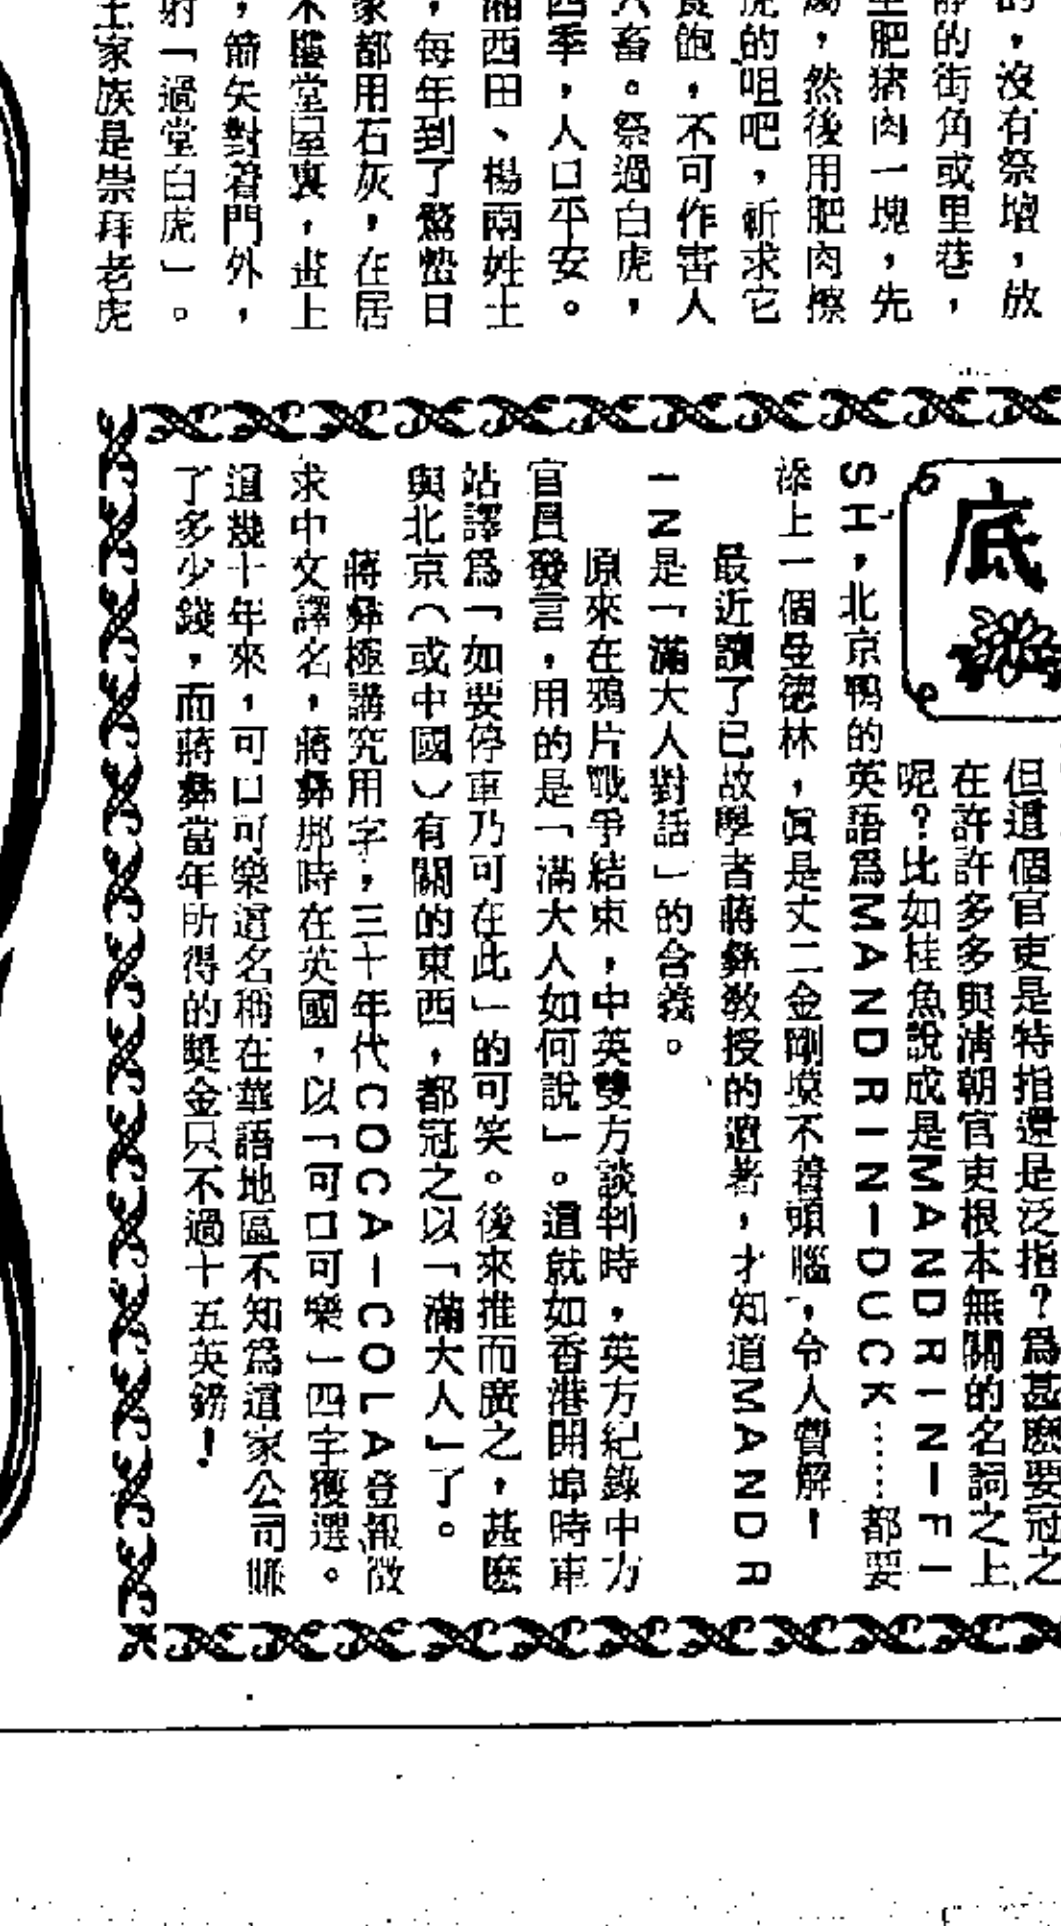 的，沒有祭壇，放
靜的街角或里巷，
肥猪肉一塊，先
，然後用肥肉擦
虎的咀吧，祈求它
食飽，不可作害人
六畜。祭過白虎，
四季，人口平安。
湘西田、楊兩姓土
，每年到了驚蟄日
家都用石灰，在居
木樓堂屋裏，畫上
，箭矢對着門外，
射「過堂白虎」。
土家族是崇拜老虎
底
但這個官吏是特指還是泛指？爲甚麽要冠之
在許許多多與清朝官吏根本無關的名詞之上
呢？比如桂魚說成是MANDRIN—FI
SH，北京鴨的英語爲MANDRIN—DUCK……都要
添上一個曼德林，眞是丈二金剛摸不着頭腦，令人費解！
最近讀了已故學者蔣彝敎授的遺著，才知道MANDR
IN是「滿大人對話」的含義。
原來在鴉片戰爭結束，中英雙方談判時，英方紀錄中方
官員發言，用的是「滿大人如何說」。這就如香港開埠時車
站譯爲「如要停車乃可在此」的可笑。後來推而廣之，甚麽
與北京（或中國）有關的東西，都冠之以「滿大人」了。
蔣彝極講究用字，三十年代COCA—COLA登報徵
求中文譯名，蔣彝那時在英國，以「可口可樂」四字獲選。
這幾十年來，可口可樂這名稱在華語地區不知爲這家公司賺
了多少錢，而蔣彝當年所得的獎金只不過十五英鎊！